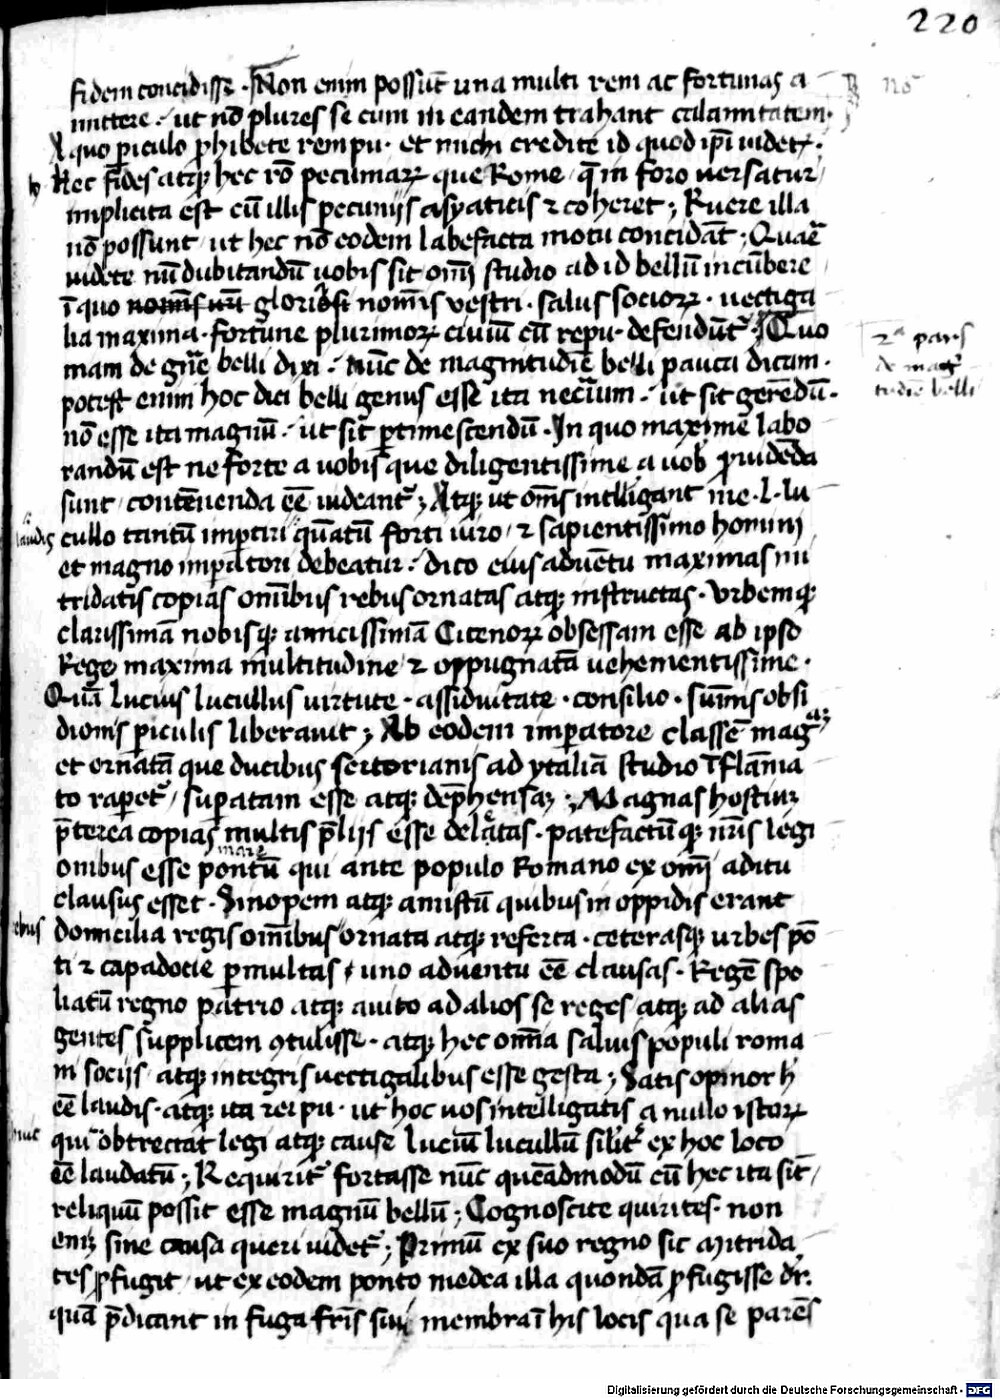 220
fidem concidisse. Non enim possūt una multi rem ac fortunas a
mittere. ut nō plures se cum in eandem trahant calamitatem.
A quo piculo phibete rempu. et michi credite id quod ipi uidet.
Hec fides atq hec rō pecuniar que Rome, q in foro uersatur
implicita est cū illis pecunijs asyaticis et coheret; Ruere illa
nō possunt ut hec nō eodem labefacta motu concidāt; Quaē
uidete nū dubitandū uobis sit omī studio ad id bellū incūbere
ī quo gloria nomīs vestri. salus socior. vectiga
lia maxima. fortune plurimor ciuiū cū repu. defendūt. Quo
niam de gñe belli dixi. nūc de magnitudiē belli pauca dicam.
potest enim hoc dici belli genus esse ita neciarium. ut sit gerēdū.
nō esse ita magnū. ut sit ptimescendū. In quo maxime labo
randū est ne forte a uobis que diligentissime a uob puidēda
sunt, contēnenda eē uideant; Atq ut omīs intelligant me. L. lu
cullo tantū imptiri quātū forti uiro, et sapientissimo homini
et magno impatori debeatur. dico eius aduētu maximas mi
tridatis copias omībus rebus ornatas atq instructas. Vrbemq
clarissimā nobisq amicissimā Citenor obsessam esse ab ipso
Rege maxima multitudine et oppugnatā uehementissime.
Quā Lucius lucullus uirtute. assiduitate. consilio. sūmis obsi
dionis piculis liberauit; Ab eodem impatore classē mag
et ornatā que ducibus sertorianis ad ytaliā studio īflāma
to rapet, supatam esse atq dephensa; Magnas hostiū
pterea copias multis plijs esse delatas. patefactūq nris legi
onibus esse pontū mare qui ante populo Romano ex omī aditu
clausus esset. Sinopem atq amistū quibus in oppidis erant
domicilia regis omībus rebus ornata atq referta. ceterasq urbes pō
ti et capadocie pmultas, uno aduentu eē clausas. Regē spo
liatū regno patrio atq auito ad alios se reges, atq ad alias
gentes supplicem 9tulisse. atq hec omīa saluis populi roma
ni socijs, atq integris uectigalibus esse gesta; Satis opinor h
eē laudis. atq ita rei pu. ut hoc uos intelligatis a nullo istor
qui huic obtrectāt legi atq cause luciū lucullū silit ex hoc loco
eē laudatū; Requirit fortasse nūc quēadmodū cū hec ita sīt,
reliquū possit esse magnū bellū; Cognoscite quirites. non
enī sine causa queri uidet; Primū ex suo regno sic Mitrida
tes pfugit, ut ex eodem ponto medea illa quondā pfugisse dr.
quā pdicant in fuga fris sui membra ī his locis qua se parēs
2ª pars
de mag
tudiē belli
laudis
Digitalisierung gefördert durch die Deutsche Forschungsgemeinschaft - DFG